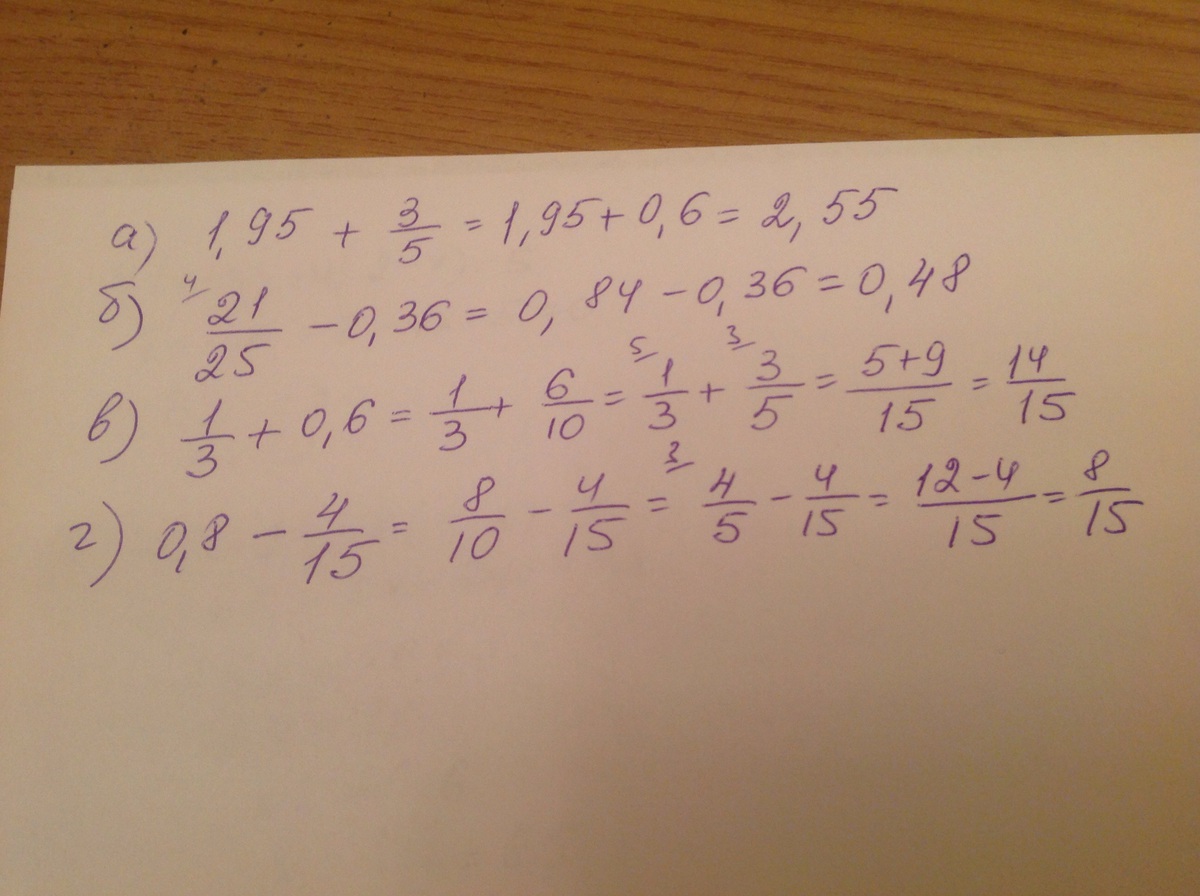 а) 1,95 + 3/5 = 1,95 + 0,6 = 2,55
б) ⁴⁄ 21/25 - 0,36 = 0,84 - 0,36 = 0,48
в) 1/3 + 0,6 = 1/3 + 6/10 = ⁵⁄ 1/3 + ³⁄ 3/5 = 5+9/15 = 14/15
г) 0,8 - 4/15 = 8/10 - 4/15 = ³⁄ 4/5 - 4/15 = 12-4/15 = 8/15